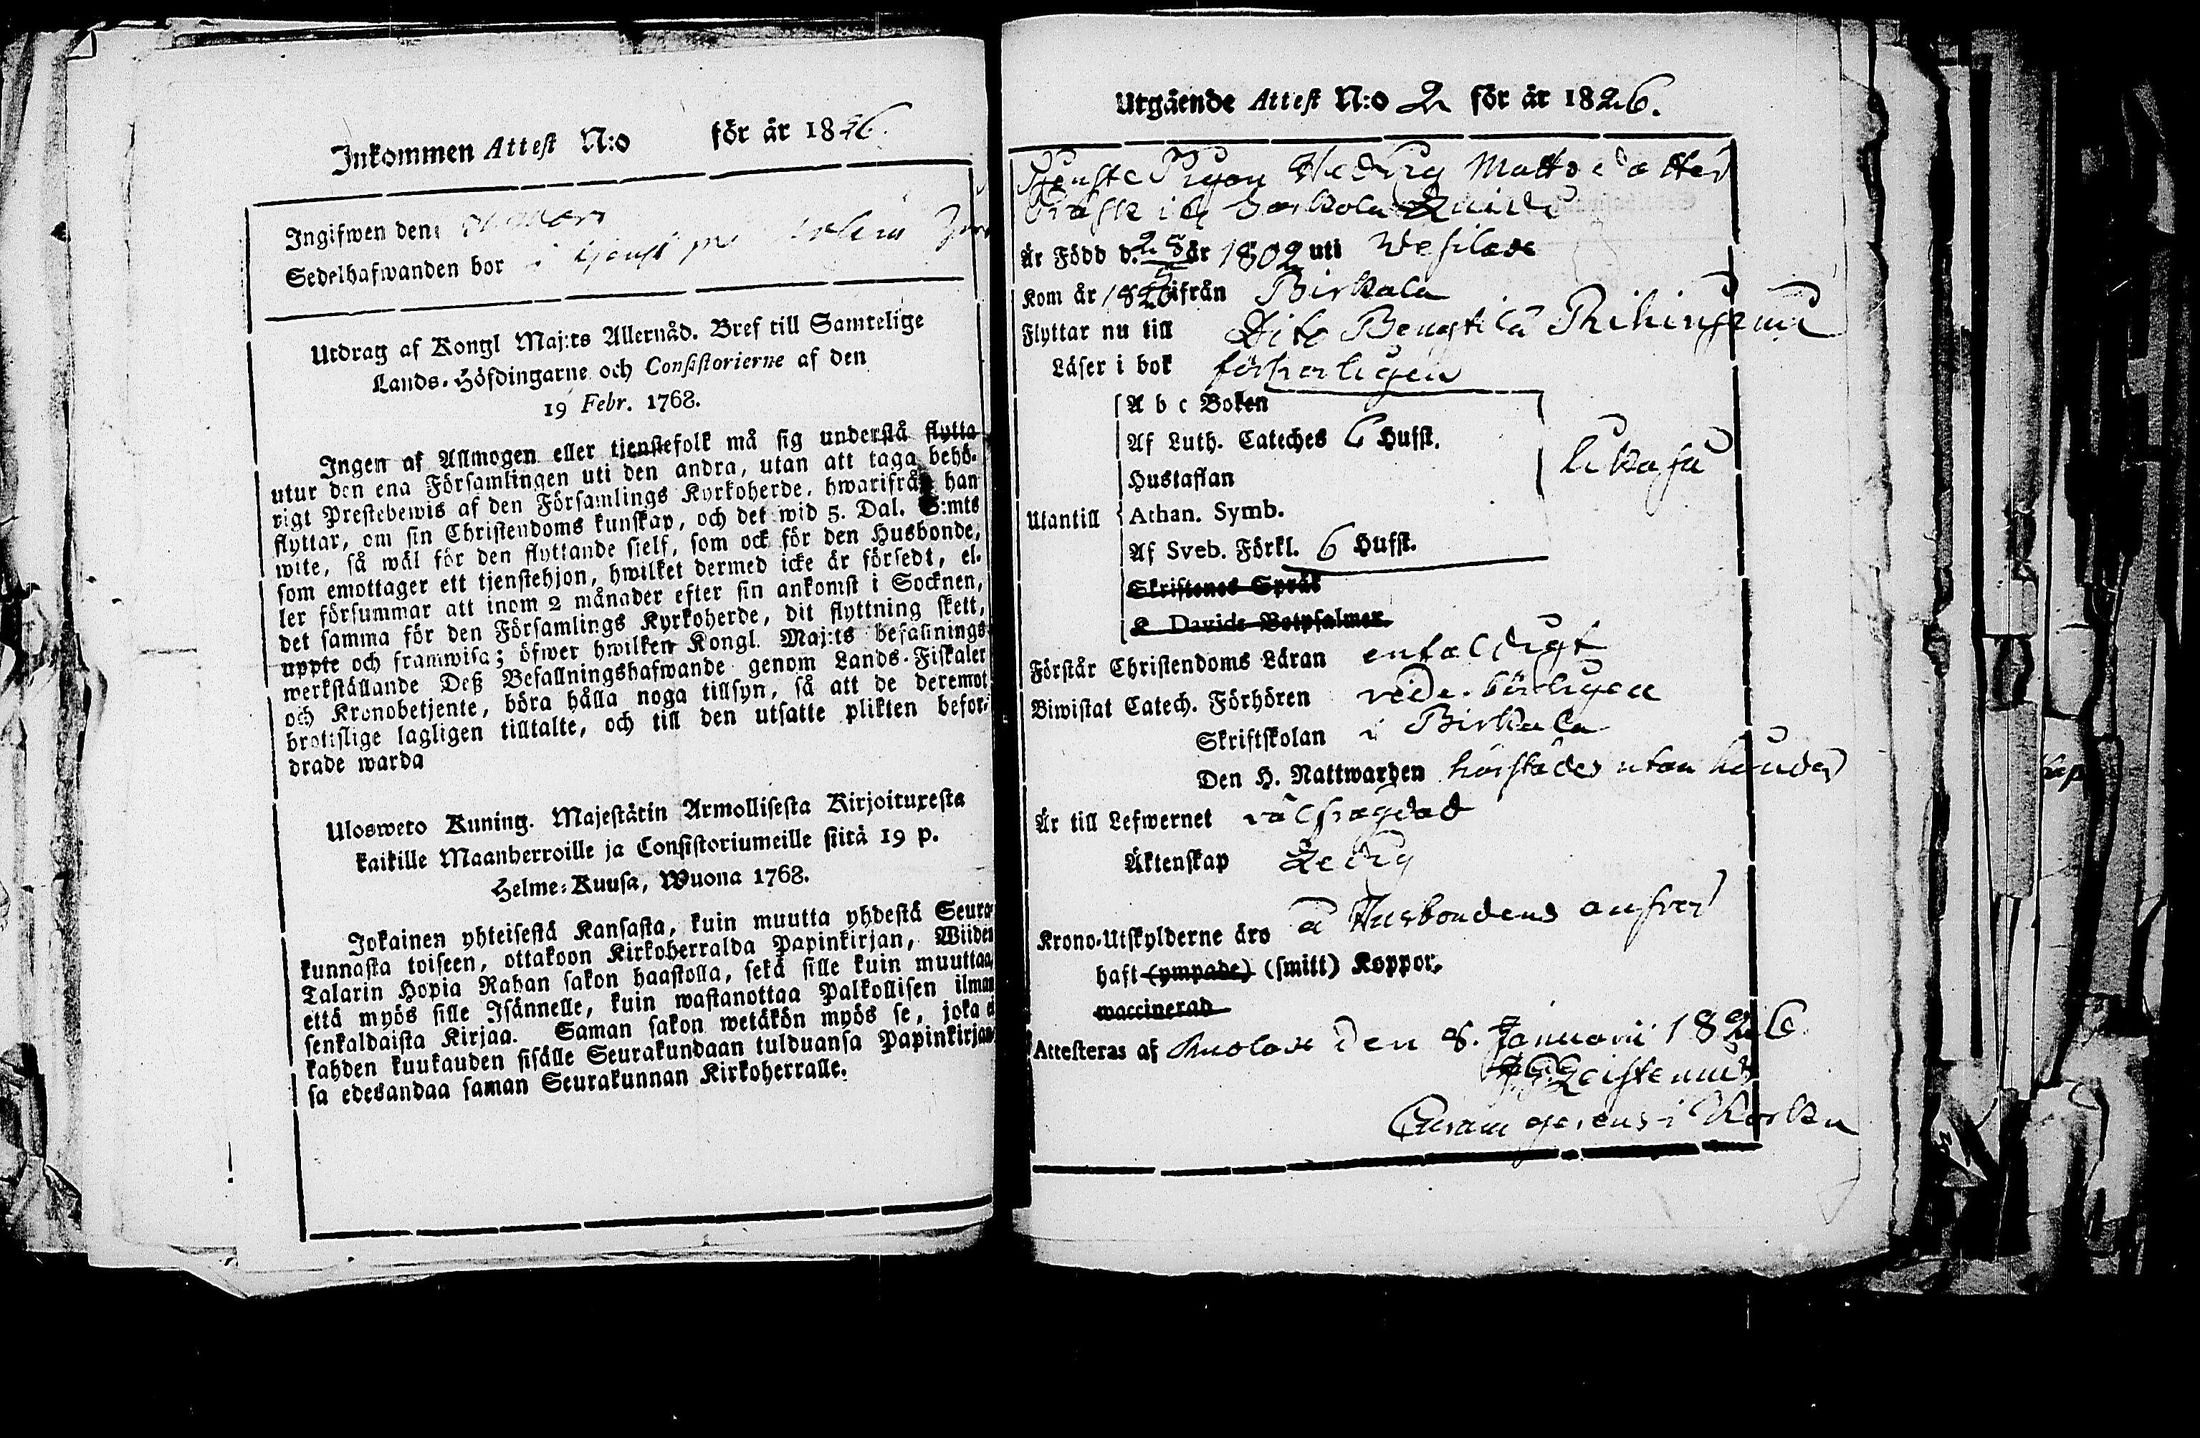 Inkommen Attest N:o för år 1826.
Ingifwen den:
Sedelhafwanden bor i tjenst
Utdrag af Kongl Maj:ts Allernåd. Bref till Samtelige
Lands-Höfdingarne och Consistorierne af den
19 Febr. 1768.
Ingen af Allmogen eller tjenstefolk må sig understå flytta
utur den ena Församlingen uti den andra, utan att taga behö-
rigt Prestebewis af den Församlings Kyrkoherde, hwarifrån han
flyttar, om sin Christendoms kunskap, och det wid 5. Dal. S:mts
wite, så wäl för den flyttande sielf, som ock för den Husbonde,
som emottager ett tjenstehjon, hwilket dermed icke är försedt, el-
ler försummar att inom 2 månader efter sin ankomst i Socknen,
det samma för den Församlings Kyrkoherde, dit flyttning skett,
uppte och framwisa; öfwer hwilken Kongl. Maj:ts befallnings
werkställande Deß Befallningshafwande genom Lands-Fiskaler
och Kronobetjente, böra hålla noga tillsyn, så att de deremot
brottslige lagligen tilltalte, och till den utsatte plikten befor-
drade warda
Ulosweto Kuning. Majestätin Armollisesta Kirjoituxesta
kaikille Maanherroille ja Consistoriumeille siitä 19 p.
Helme-Kuusa, Wuona 1768.
Jokainen yhteisestä Kansasta, kuin muutta yhdestä Seura-
kunnasta toiseen, ottakoon Kirkoherralda Papinkirjan, Wiiden
Talarin Hopia Rahan sakon haastolla, sekä sille kuin muuttaa,
että myös sille Isännelle, kuin wastanottaa Palkollisen ilman
senkaldaista Kirjaa. Saman sakon wetäkön myös se, joka ei
kahden kuukauden sisälle Seurakundaan tulduansa Papinkirjan-
sa edesandaa saman Seurakunnan Kirkoherralle.
Utgående Attest N:o 2 för år 1826.
Tjenste Pigan Hedvig Matts dotter
från
Är Född d. 25/5 år 1802 uti Wesilax
Kom år 1825 ifrån Birkala
Flyttar nu till Dito Bengtilä
Läser i bok försvarligen
A b c Boken
Af Luth. Cateches 6 Hufst.
Hustaflan
likaså
Utantill Athan. Symb.
Af Sveb. Förkl. 6 Hufst.
Skriftenes Språk
K. Davids Botpsalmer.
Förstår Christendoms Läran enfaldigt
Biwistat Catech. Förhören vederbörligen
Skriftskolan i Birkala
Den H. Nattwarden härstädes utan hinder
Är till Lefwernet välfrägdad
Äktenskap Ledig
Krono-Utskylderne äro å Husbondens ansvar
haft (ympade) (smitt) Koppor.
waccinerad
Attesteras af den 8. Januarii 1826
Curam gerens i